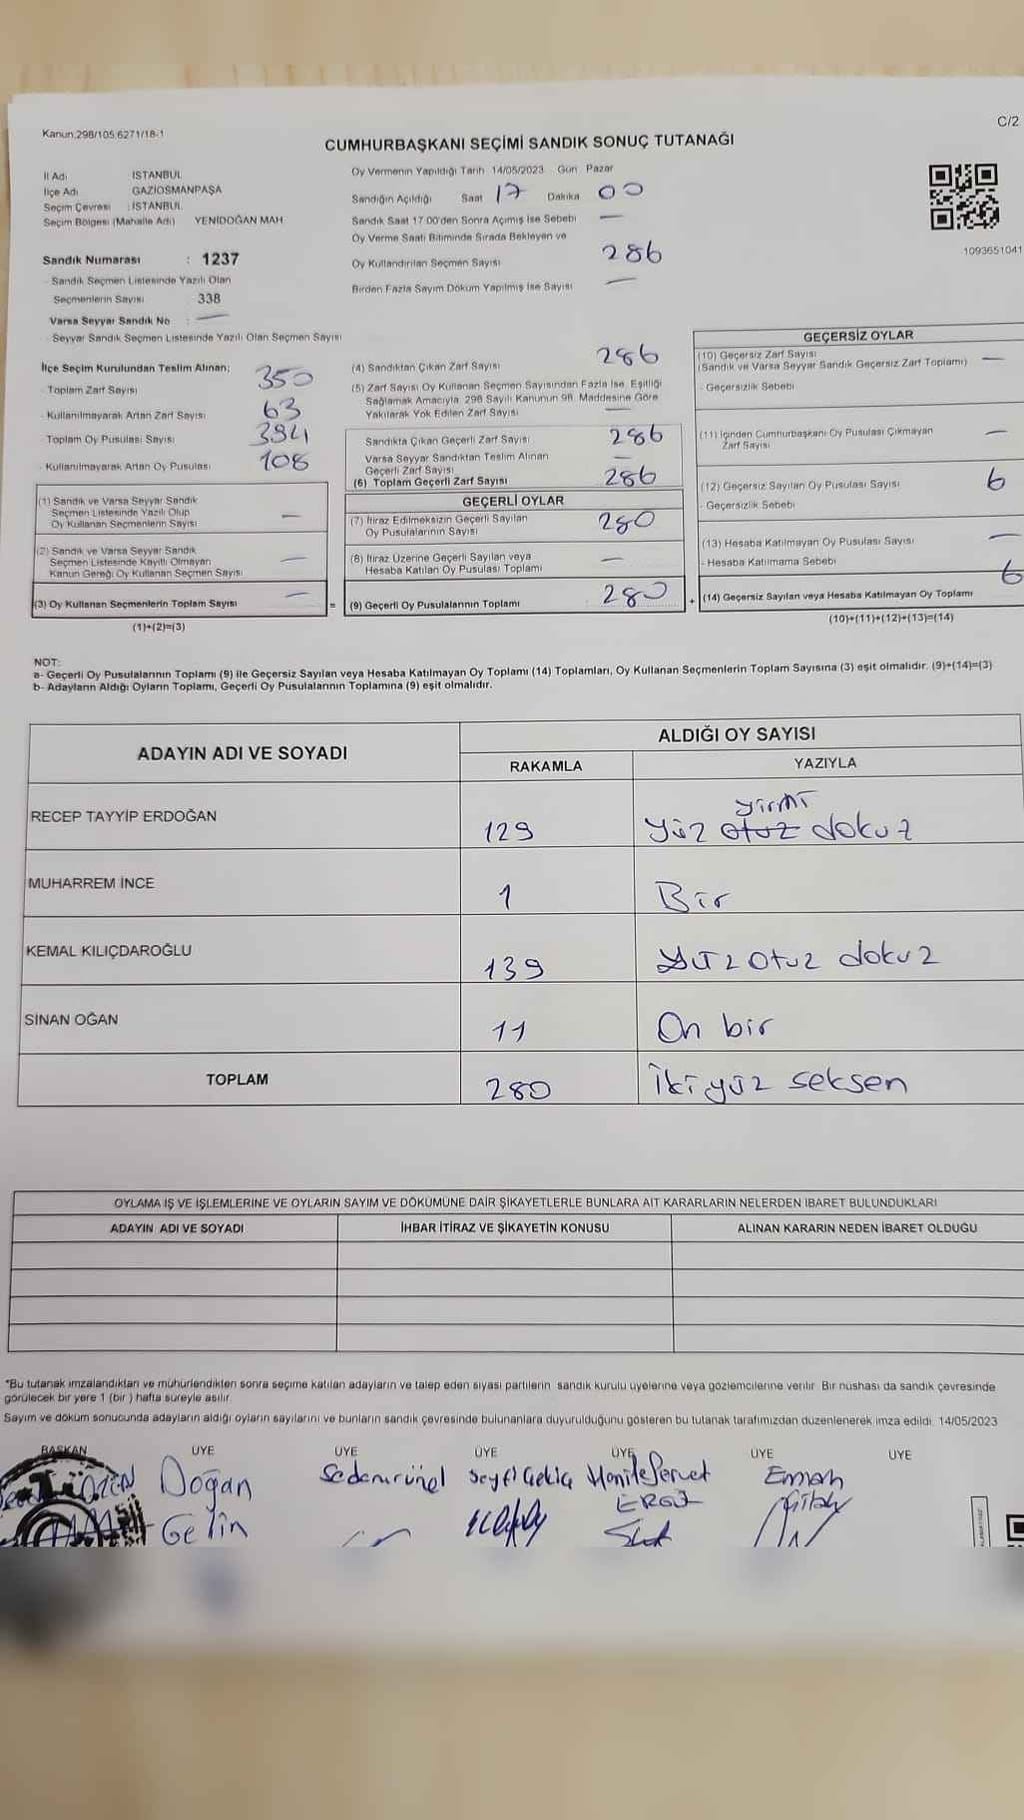 Kanun:298/105,6271/18-1
C/2
CUMHURBAŞKANI SEÇİMİ SANDIK SONUÇ TUTANAĞI
İl Adı İSTANBUL
İlçe Adı GAZİOSMANPAŞA
Seçim Çevresi : İSTANBUL
Seçim Bölgesi (Mahalle Adı) YENİDOĞAN MAH
Oy Vermenin Yapıldığı Tarih 14/05/2023 Gün Pazar
Sandığın Açıldığı Saat 17 Dakika 00
Sandık Saat 17.00'den Sonra Açımış İse Sebebi —
Oy Verme Saati Bitiminde Sırada Bekleyen ve
Oy Kullandırılan Seçmen Sayısı 286
Birden Fazla Sayım Döküm Yapılmış İse Sayısı —
1093651041
Sandık Numarası : 1237
- Sandık Seçmen Listesinde Yazılı Olan
Seçmenlerin Sayısı 338
Varsa Seyyar Sandık No : —
- Seyyar Sandık Seçmen Listesinde Yazılı Olan Seçmen Sayısı
İlçe Seçim Kurulundan Teslim Alınan;
- Toplam Zarf Sayısı 350
- Kullanılmayarak Artan Zarf Sayısı 63
- Toplam Oy Pusulası Sayısı 394
- Kullanılmayarak Artan Oy Pusulası 108
(1) Sandık ve Varsa Seyyar Sandık
Seçmen Listesinde Yazılı Olup
Oy Kullanan Seçmenlerin Sayısı —
(2) Sandık ve Varsa Seyyar Sandık
Seçmen Listesinde Kayıtlı Olmayan
Kanun Gereği Oy Kullanan Seçmen Sayısı —
(3) Oy Kullanan Seçmenlerin Toplam Sayısı —
(1)+(2)=(3)
=
(4) Sandıktan Çıkan Zarf Sayısı 286
(5) Zarf Sayısı Oy Kullanan Seçmen Sayısından Fazla İse, Eşitliği
Sağlamak Amacıyla, 298 Sayılı Kanunun 98. Maddesine Göre
Yakılarak Yok Edilen Zarf Sayısı —
Sandıkta Çıkan Geçerli Zarf Sayısı 286
Varsa Seyyar Sandıktan Teslim Alınan
Geçerli Zarf Sayısı —
(6) Toplam Geçerli Zarf Sayısı 286
GEÇERLİ OYLAR
(7) İtiraz Edilmeksizin Geçerli Sayılan
Oy Pusulalarının Sayısı 280
(8) İtiraz Üzerine Geçerli Sayılan veya
Hesaba Katılan Oy Pusulası Toplamı —
(9) Geçerli Oy Pusulalarının Toplamı 280
+
GEÇERSİZ OYLAR
(10) Geçersiz Zarf Sayısı
(Sandık ve Varsa Seyyar Sandık Geçersiz Zarf Toplamı) —
- Geçersizlik Sebebi
(11) İçinden Cumhurbaşkanı Oy Pusulası Çıkmayan
Zarf Sayısı —
(12) Geçersiz Sayılan Oy Pusulası Sayısı 6
- Geçersizlik Sebebi
(13) Hesaba Katılmayan Oy Pusulası Sayısı —
- Hesaba Katılmama Sebebi
(14) Geçersiz Sayılan veya Hesaba Katılmayan Oy Toplamı 6
(10)+(11)+(12)+(13)=(14)
NOT:
a- Geçerli Oy Pusulalarının Toplamı (9) ile Geçersiz Sayılan veya Hesaba Katılmayan Oy Toplamı (14) Toplamları, Oy Kullanan Seçmenlerin Toplam Sayısına (3) eşit olmalıdır. (9)+(14)=(3)
b- Adayların Aldığı Oyların Toplamı, Geçerli Oy Pusulalarının Toplamına (9) eşit olmalıdır.
ADAYIN ADI VE SOYADI
ALDIĞI OY SAYISI
RAKAMLA YAZIYLA
RECEP TAYYİP ERDOĞAN 129 yüz otuz yirmi dokuz
MUHARREM İNCE 1 Bir
KEMAL KILIÇDAROĞLU 139 yüz otuz dokuz
SİNAN OĞAN 11 On bir
TOPLAM 280 İkiyüz seksen
OYLAMA İŞ VE İŞLEMLERİNE VE OYLARIN SAYIM VE DÖKÜMÜNE DAİR ŞİKAYETLERLE BUNLARA AİT KARARLARIN NELERDEN İBARET BULUNDUKLARI
ADAYIN ADI VE SOYADI İHBAR İTİRAZ VE ŞİKAYETİN KONUSU ALINAN KARARIN NEDEN İBARET OLDUĞU
*Bu tutanak imzalandıktan ve mühürlendikten sonra seçime katılan adayların ve talep eden siyasi partilerin sandık kurulu üyelerine veya gözlemcilerine verilir. Bir nüshası da sandık çevresinde
görülecek bir yere 1 (bir) hafta süreyle asılır.
Sayım ve döküm sonucunda adayların aldığı oyların sayılarını ve bunların sandık çevresinde bulunanlara duyurulduğunu gösteren bu tutanak tarafımızdan düzenlenerek imza edildi. 14/05/2023
BAŞKAN ÜYE ÜYE ÜYE ÜYE ÜYE ÜYE
Doğan
Gelin